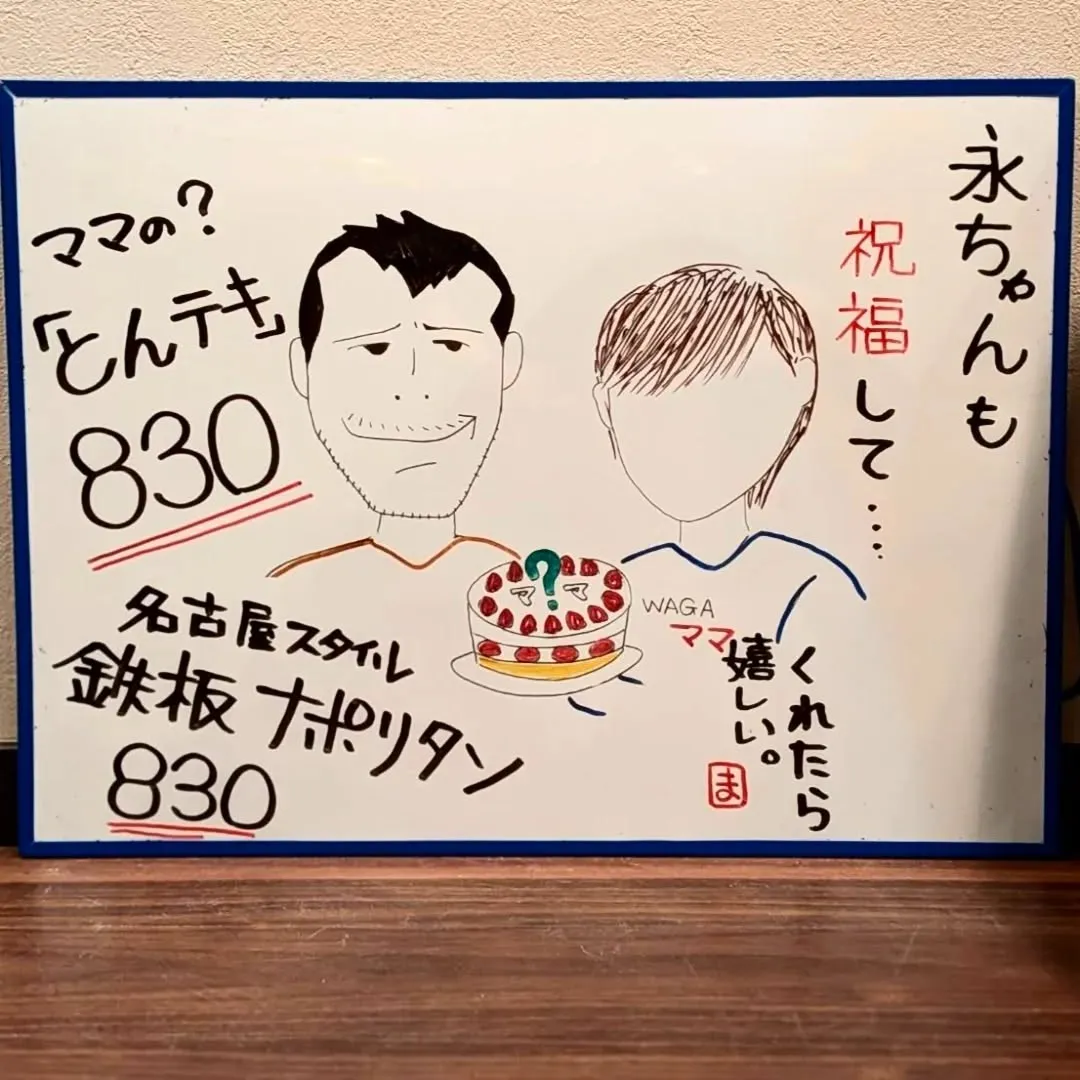 永ちゃんも
祝福して…
くれたら
嬉しい。
ま
ママの?
「とんテキ」
830
?
WAGA
ママ
名古屋スタイル
鉄板ナポリタン
830